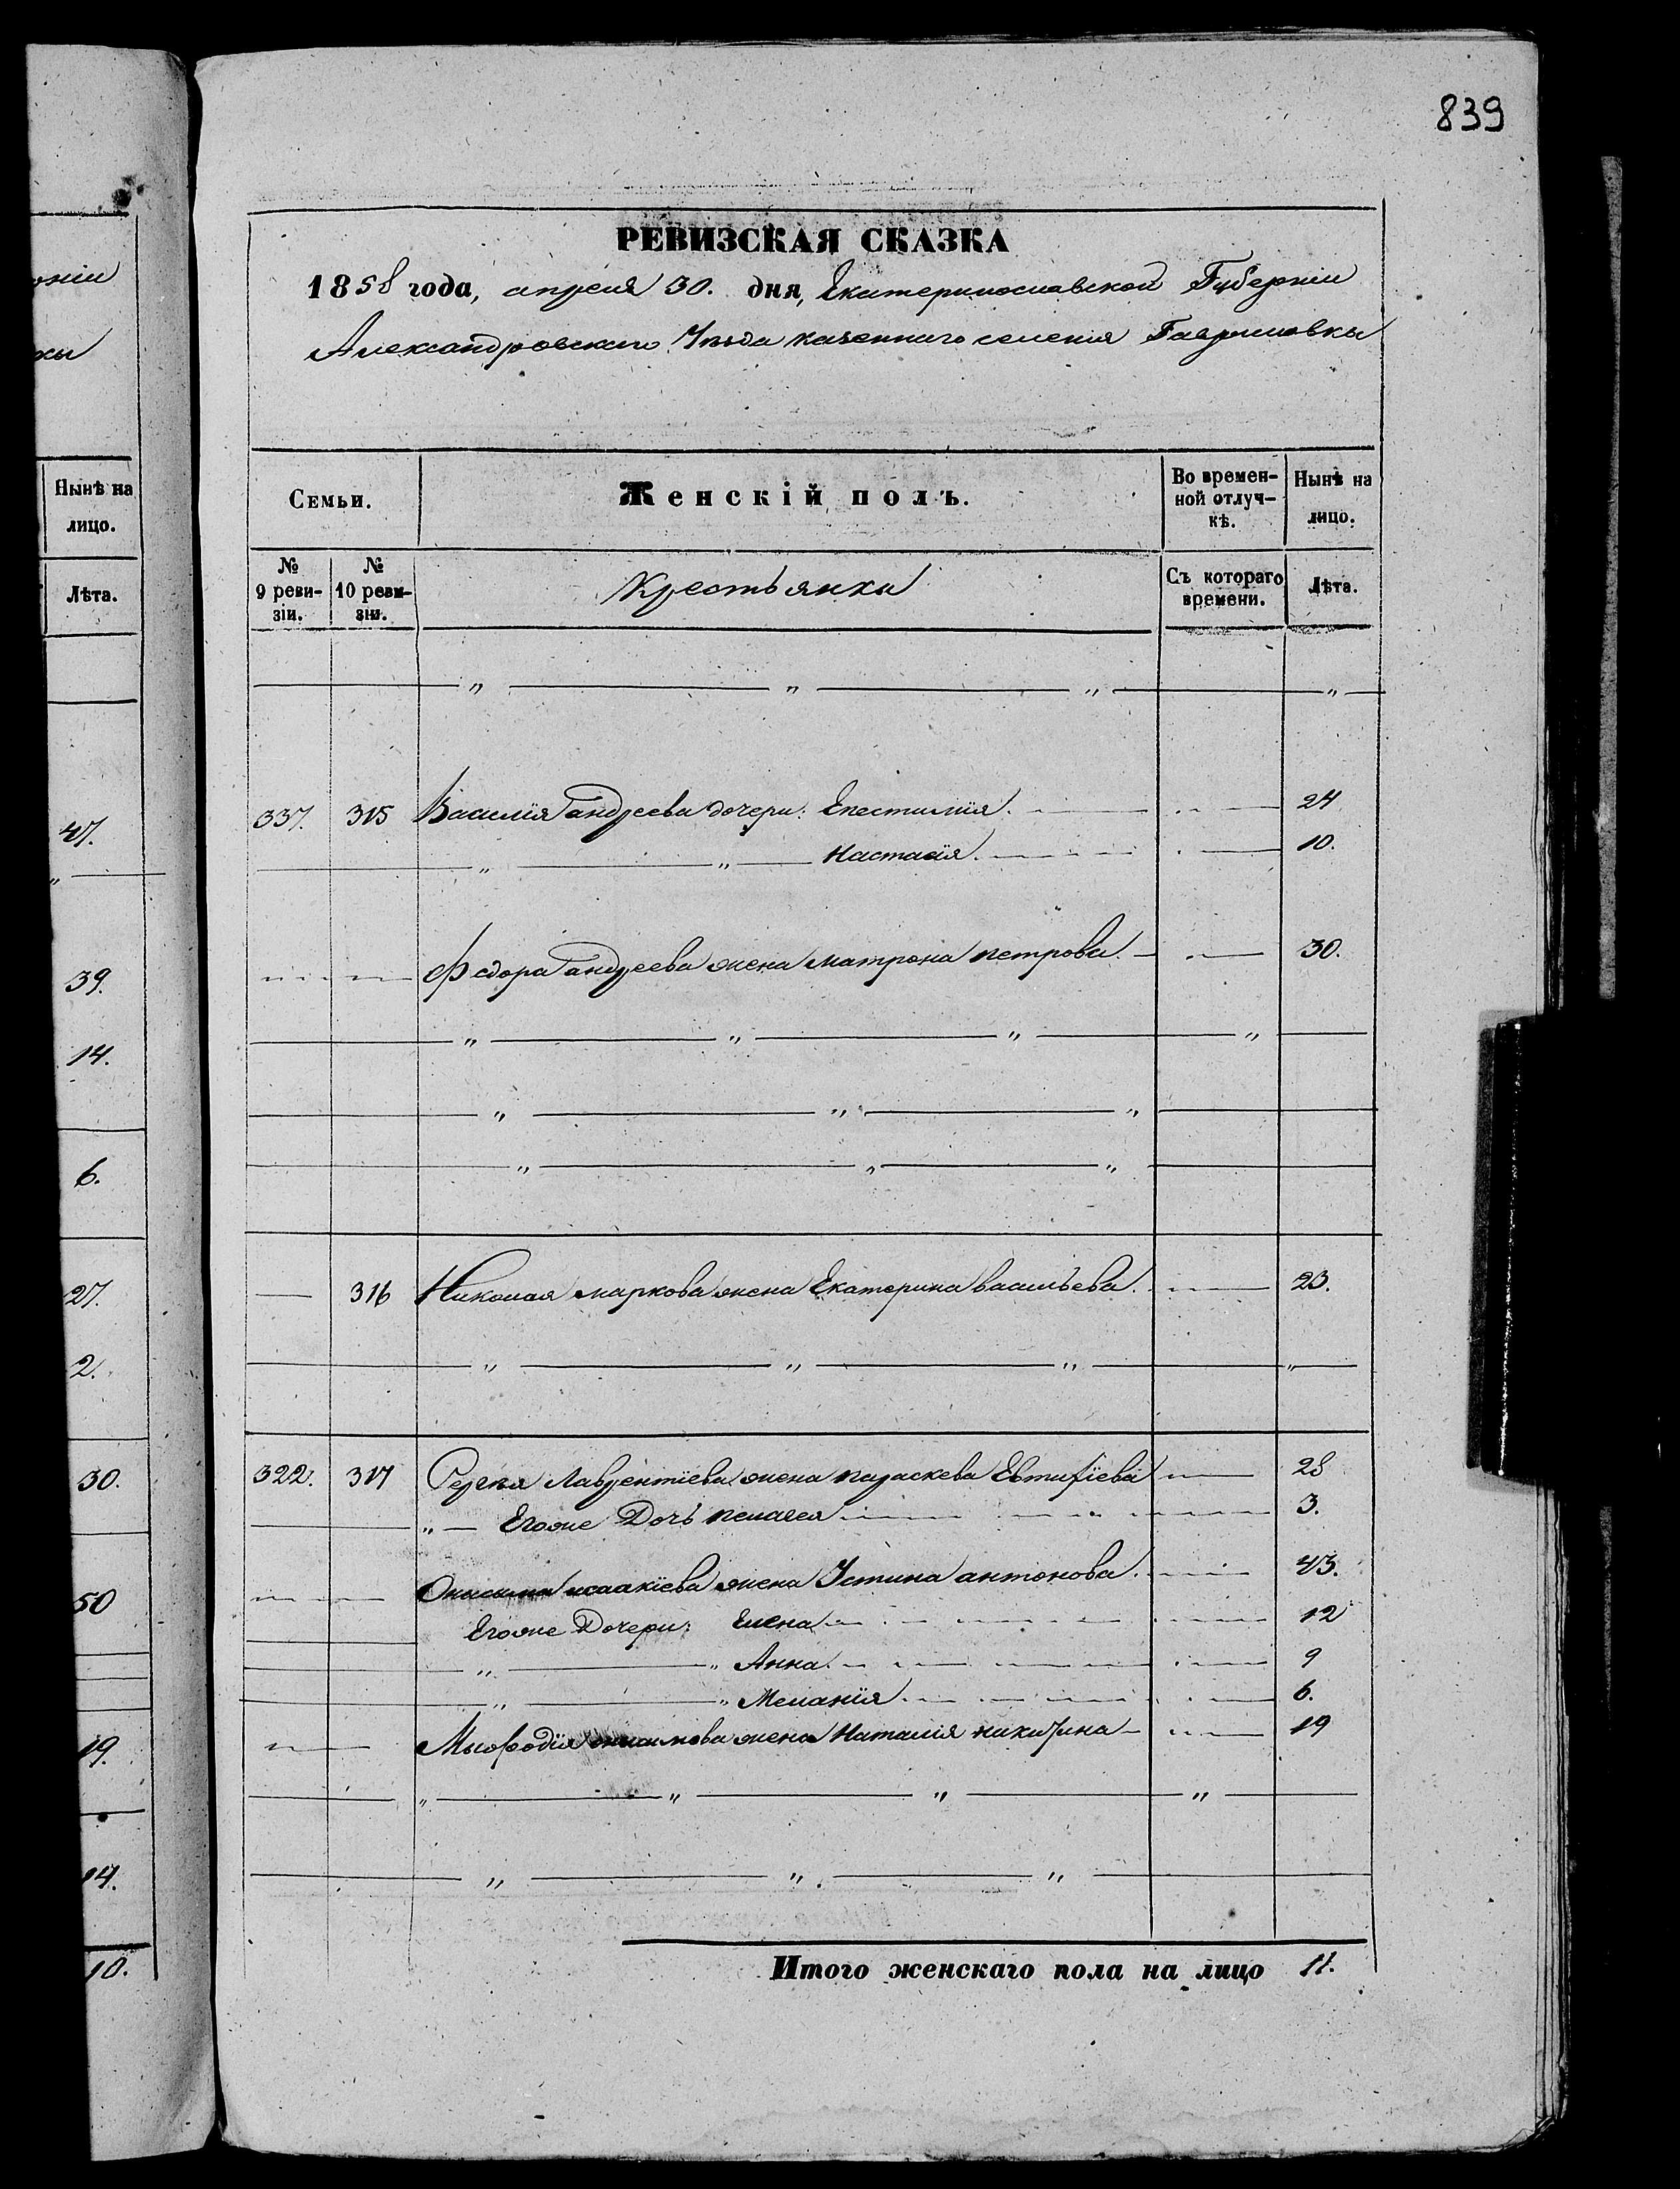 839
РЕВИЗСКАЯ СКАЗКА
1858 года, апреля 30. дня, Екатеринославской Губерніи
Александровскаго Уѣзда казеннаго селенія Гавриловки
Семьи. Женскій полъ. Во времен- Нынѣ на
ной отлуч- лицо.
кѣ.
№ № Крестьянки Съ котораго Лѣта.
9 реви- 10 реви- времени.
зіи. зіи.
337. 315 Василія андреева дочери: Епестилія. 24
" " Настасія. 10.
Федора андреева жена матрона петрова. 30.
316 Николая маркова жена Екатерина васильева. 23.
322. 317 Сергѣя Лаврентіева жена параскева Евтифіева 28
" Егоже Дочь пелагея 3.
Онисима исаакіева жена Устина антонова. 43.
Егоже Дочери: Елена 12
" " Анна. 9
" " Меланія. 6.
Мыфодія онисимова жена Наталія никитина 19
Итого женскаго пола на лицо 11.
оніи
ки
Нынѣ на
лицо.
Лѣта.
47.
"
39.
14.
6.
27.
2.
30.
50
19.
14.
10.